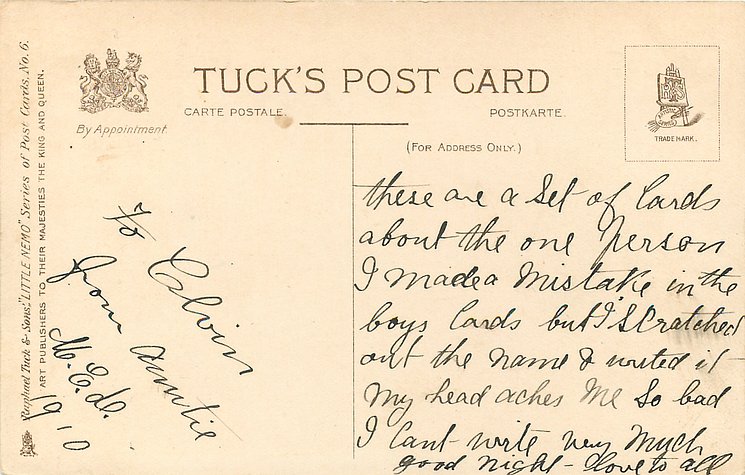 Raphael Tuck & Sons' "LITTLE NEMO" Series of Post Cards. No. 6.
ART PUBLISHERS TO THEIR MAJESTIES THE KING AND QUEEN.
By Appointment.
TUCK'S POST CARD
CARTE POSTALE.
POSTKARTE.
(FOR ADDRESS ONLY.)
TRADE MARK.
To Elvin
from Auntie
M. E. D.
1910
these are a Set of Cards
about the one Person
I made a mistake in the
boys Cards but I scratched
out the name &
my head aches me so bad
I Cant write very much
good night - love to all